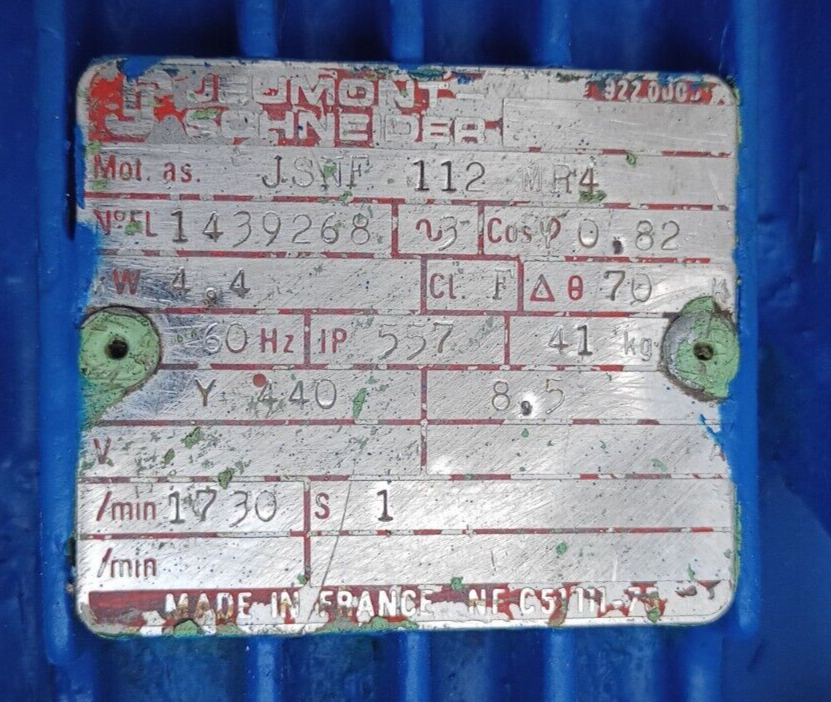 JEUMONT
SCHNEIDER
Mot. as. JSNF 112 MR4
N°FL 1439268 ~3 Cosφ 0,82
kW 4,4 Cl. F Δ θ 70 K
60 Hz IP 557 41 kg
Y 440 8,5
V A
/min 1730 S 1
/min
MADE IN FRANCE NF C51 111-75